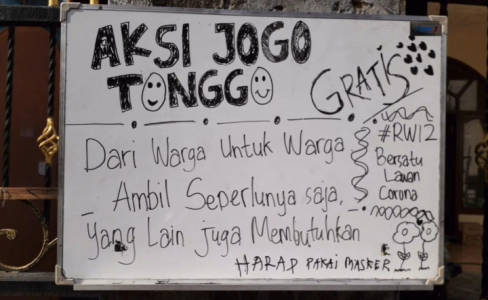 AKSI JOGO
TONGGO
GRATIS
Dari Warga Untuk Warga
_ Ambil Seperlunya saja, _
yang Lain juga Membutuhkan
#RW12
Bersatu
Lawan
Corona
HARAP PAKAI MASKER